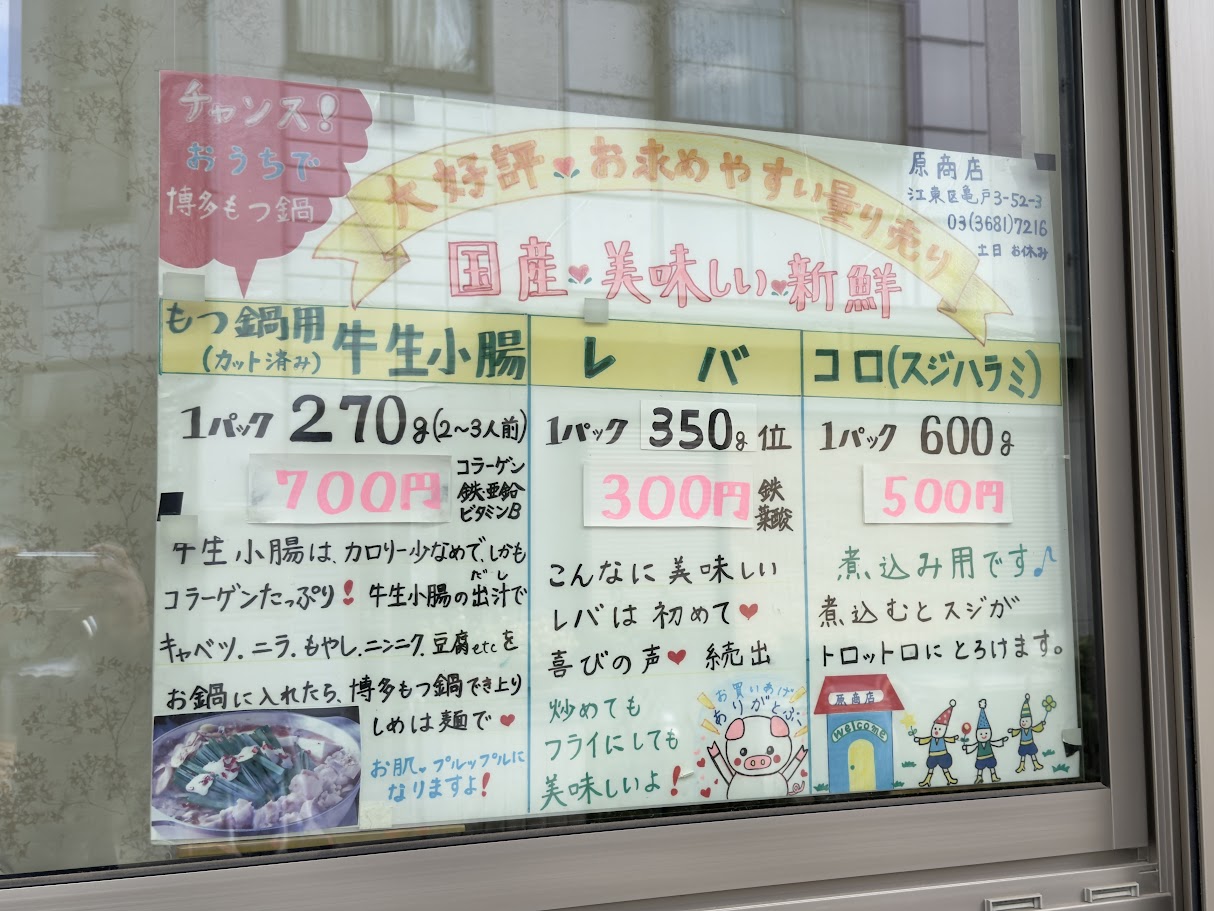 チャンス!
おうちで
博多もつ鍋
大好評♥お求めやすい量り売り
国産♥美味しい♥新鮮
原商店
江東区亀戸3-52-3
03(3681)7216
土日 お休み
もつ鍋用
(カット済み)
牛生小腸
1パック 270g(2〜3人前)
700円
コラーゲン
鉄亜鉛
ビタミンB
牛生小腸は、カロリー少なめで、しかも
コラーゲンたっぷり! 牛生小腸の出汁で
だし
キャベツ.ニラ.もやし.ニンニク.豆腐etcを
お鍋に入れたら、博多もつ鍋でき上り
しめは麺で♥
お肌♥プルップルに
なりますよ!
レバ
1パック 350g位
300円
鉄
葉酸
こんなに美味しい
レバは初めて♥
喜びの声♥続出
炒めても
フライにしても
美味しいよ!
お買いあげ
ありがとぶー
コロ(スジハラミ)
1パック 600g
500円
煮込み用です♪
煮込むとスジが
トロットロにとろけます。
原商店
Welcome